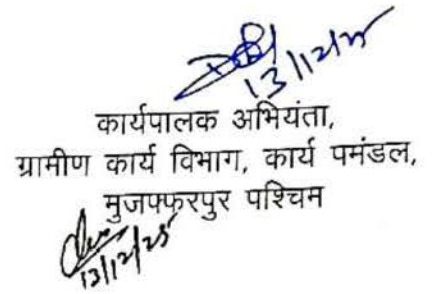 13/12/25
कार्यपालक अभियंता,
ग्रामीण कार्य विभाग, कार्य पमंडल,
मुजफ्फरपुर पश्चिम
13/12/25